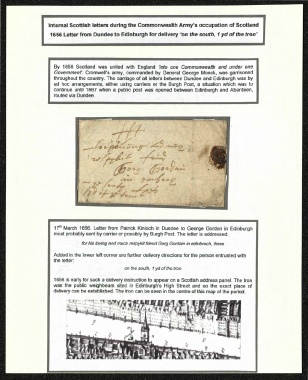 Internal Scottish letters during the Commonwealth Army's occupation of Scotland
1656 Letter from Dundee to Edinburgh for delivery 'on the south, 1 yd of the tron'
By 1656 Scotland was united with England 'into one Commonwealth and under one
Government'. Cromwell's army, commanded by General George Monck, was garrisoned
throughout the country. The carriage of all letters between Dundee and Edinburgh was by
ad hoc arrangements, either using carriers or the Burgh Post, a situation which was to
continue until 1667 when a public post was opened between Edinburgh and Aberdeen,
routed via Dundee.
17th March 1656. Letter from Patrick Kinloch in Dundee to George Gordon in Edinburgh
most probably sent by carrier or possibly by Burgh Post. The letter is addressed:
for his loving and much respykit friend Gorg Gordain in edinbrech, these
Added in the lower left corner are further delivery directions for the person entrusted with
the letter:
on the south, 1 yd of the tron
1656 is early for such a delivery instruction to appear on a Scottish address panel. The tron
was the public weighbeam sited in Edinburgh's High Street and so the exact place of
delivery can be established. The tron can be seen in the centre of this map of the period.